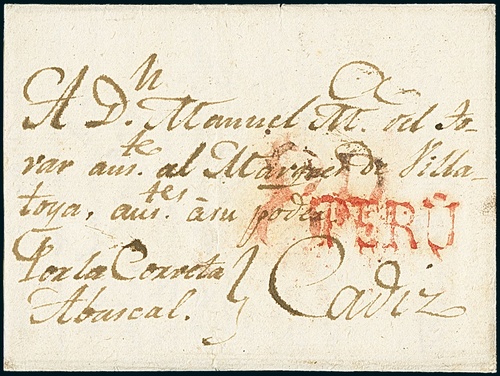 A Dn. Manuel Ma. del To-
var ause. al Marqes de Villa-
toya, austes. à su poder
PERÚ
Por la Correta
Abascal.
Cadiz